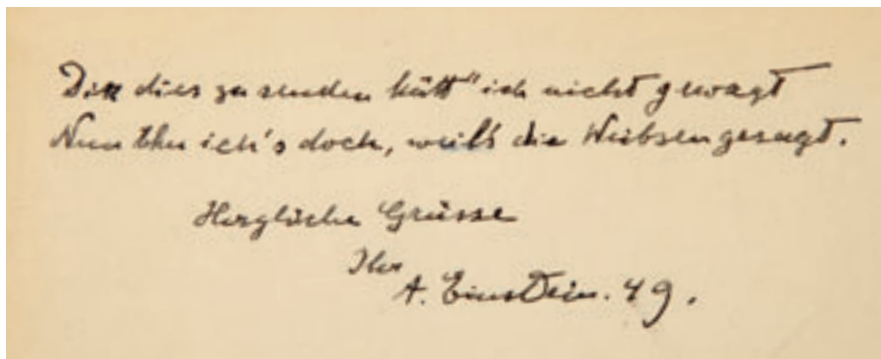 Dir dies zu senden hätt' ich nicht gewagt
Nun thu ich's doch, weil's die Weibsen gesagt.
Herzliche Grüsse
Ihr
A. Einstein. 49.